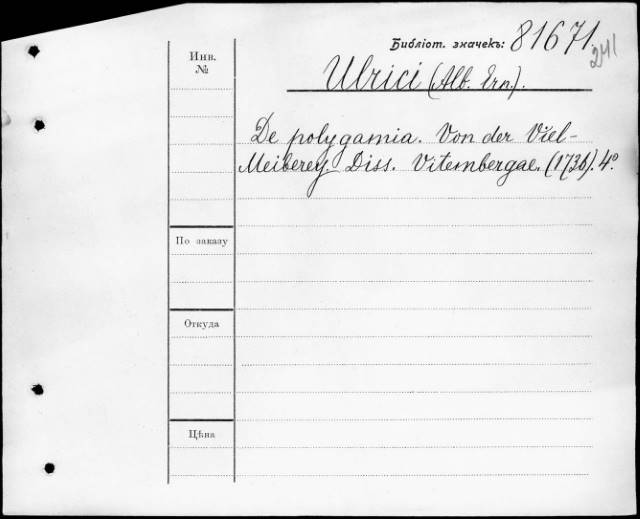 Библіот. значекъ: 81671.
241
Инв.
№
Ulrici (Alb. Ern.).
De polygamia. Von der Viel-
Meiberey Diss. Vitembergae. (1736). 4º.
По заказу
Откуда
Цѣна